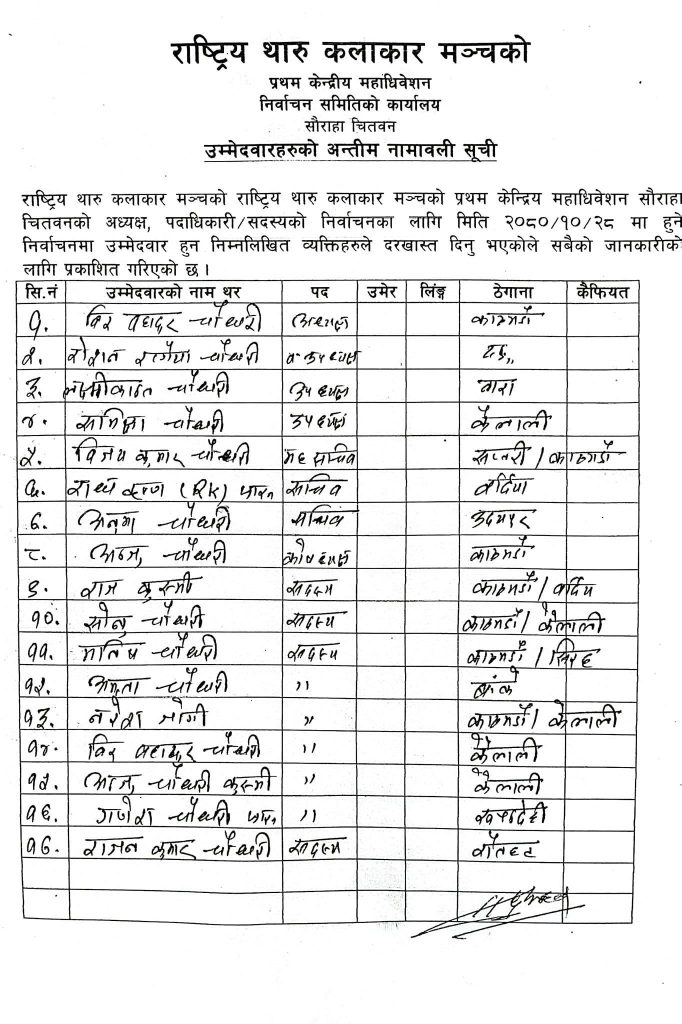 राष्ट्रिय थारु कलाकार मञ्चको
प्रथम केन्द्रीय महाधिवेशन
निर्वाचन समितिको कार्यालय
सौराहा चितवन
उम्मेदवारहरुको अन्तीम नामावली सूची
राष्ट्रिय थारु कलाकार मञ्चको राष्ट्रिय थारु कलाकार मञ्चको प्रथम केन्द्रिय महाधिवेशन सौराहा
चितवनको अध्यक्ष, पदाधिकारी/सदस्यको निर्वाचनका लागि मिति २०८०/१०/२८ मा हुने
निर्वाचनमा उम्मेदवार हुन निम्नलिखित व्यक्तिहरुले दरखास्त दिनु भएकोले सबैको जानकारीको
लागि प्रकाशित गरिएको छ ।
सि.नं उम्मेदवारको नाम थर पद उमेर लिंङ्ग ठेगाना कैफियत
१. विर बहादुर चौधरी अध्यक्ष काठमाडौं
२. रोशन चौधरी व. उपाध्यक्ष
३. लक्ष्मीकान्त चौधरी उपाध्यक्ष बारा
४. समिक्षा चौधरी उपाध्यक्ष कैलाली
५. विजय कुमार चौधरी महासचिव सप्तरी / काठमाडौं
६. (RK) थारु सचिव बर्दिया
७. चौधरी सचिव उदयपुर
८. चौधरी कोषाध्यक्ष काठमाडौं
९. राज कुस्मी सदस्य काठमाडौं / बर्दिया
१०. सोनु चौधरी सदस्य काठमाडौं / कैलाली
११. मनिष चौधरी सदस्य काठमाडौं /
१२. चौधरी ,, बांके
१३. नरेश जोगी ,, काठमाडौं / कैलाली
१४. विर बहादुर चौधरी ,, कैलाली
१५. चौधरी कुस्मी ,, कैलाली
१६. गणेश चौधरी थारु ,, रुपन्देही
१७. राजन कुमार चौधरी सदस्य रौतहट